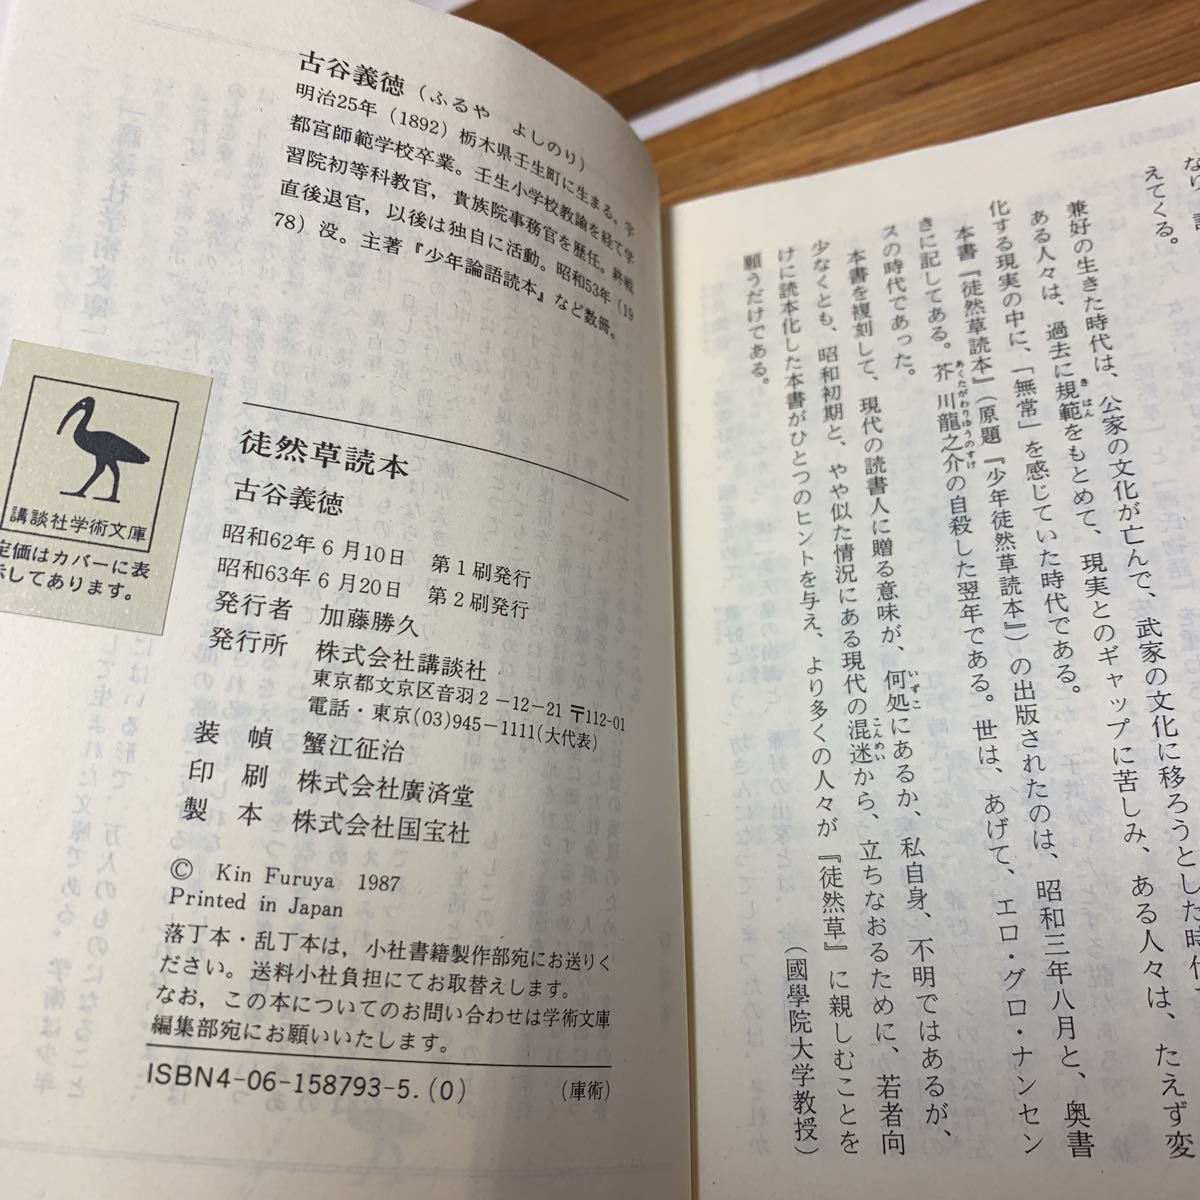 古谷義徳（ふるや　よしのり）
明治25年（1892）栃木県壬生町に生まる。宇
都宮師範学校卒業。壬生小学校教諭を経て学
習院初等科教官，貴族院事務官を歴任。終戦
直後退官，以後は独自に活動。昭和53年（19
78）没。主著『少年論語読本』など数冊。
講談社学術文庫
定価はカバーに表
示してあります。
徒然草読本
古谷義徳
昭和62年6月10日　第1刷発行
昭和63年6月20日　第2刷発行
発行者　加藤勝久
発行所　株式会社講談社
東京都文京区音羽2-12-21 〒112-01
電話・東京(03)945-1111(大代表)
装　幀　蟹江征治
印　刷　株式会社廣済堂
製　本　株式会社国宝社
© Kin Furuya 1987
Printed in Japan
落丁本・乱丁本は，小社書籍製作部宛にお送りく
ださい。送料小社負担にてお取替えします。
なお，この本についてのお問い合わせは学術文庫
編集部宛にお願いいたします。
ISBN4-06-158793-5.(0)　（庫術）
えてくる。
兼好の生きた時代は、公家の文化が亡んで、武家の文化に移ろうとした時代で
ある人々は、過去に規範をもとめて、現実とのギャップに苦しみ、ある人々は、たえず変
化する現実の中に、「無常」を感じていた時代である。
本書『徒然草読本』（原題『少年徒然草読本』）の出版されたのは、昭和三年八月と、奥書
きに記してある。芥川龍之介の自殺した翌年である。世は、あげて、エロ・グロ・ナンセン
スの時代であった。
本書を複刻して、現代の読書人に贈る意味が、何処にあるか、私自身、不明ではあるが、
少なくとも、昭和初期と、やや似た情況にある現代の混迷から、立ちなおるために、若者向
けに読本化した本書がひとつのヒントを与え、より多くの人々が『徒然草』に親しむことを
願うだけである。
（國學院大学教授）